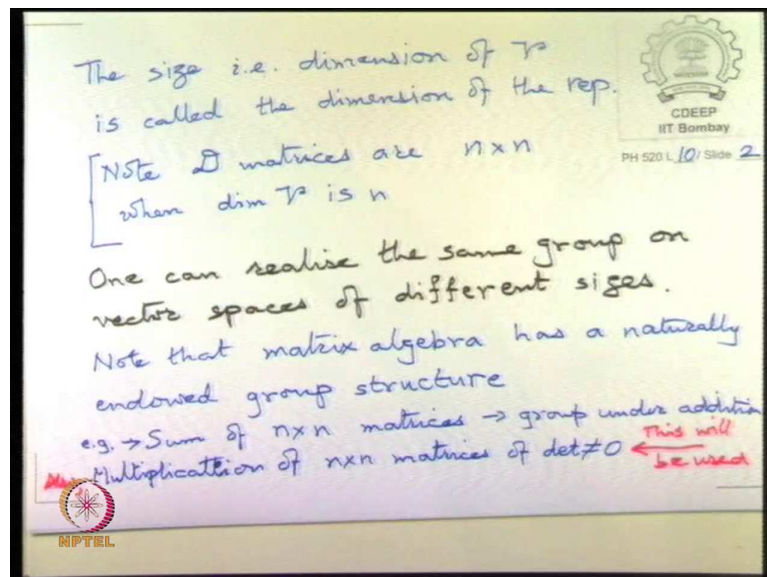 The size i.e. dimension of V
is called the dimension of the rep.
CDEEP
IIT Bombay
PH 520 L 10 / Slide 2
Note D matrices are n×n
when dim V is n
One can realise the same group on
vector spaces of different sizes.
Note that matrix algebra has a naturally
endowed group structure
e.g. → Sum of n×n matrices → group under addition
Multiplication of n×n matrices of det≠0 ← This will
be used
NPTEL